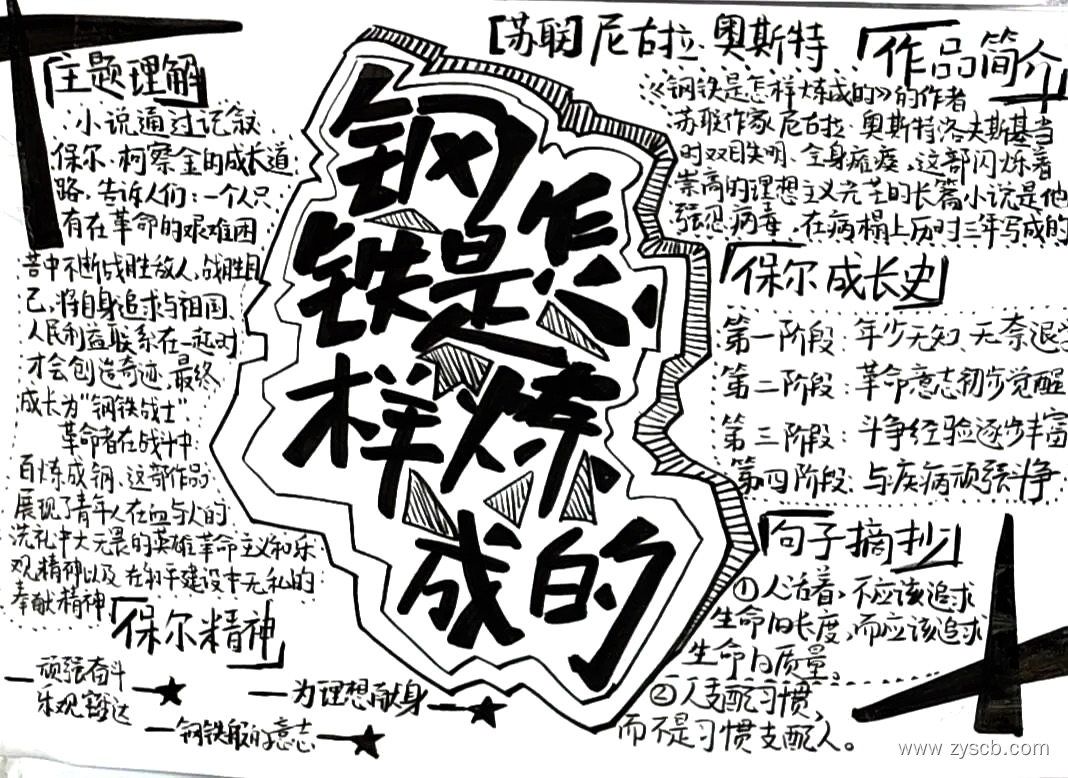 [苏联]尼古拉·奥斯特
钢
铁是怎
样炼
成的
「主题理解」
小说通过记叙
保尔·柯察金的成长道
路，告诉人们：一个人只
有在革命的艰难困
苦中不断战胜敌人，战胜自
己，将自身追求与祖国、
人民利益联系在一起时
才会创造奇迹，最终
成长为“钢铁战士”
革命者在战斗中
百炼成钢，这部作品
展现了青年人在血与火的
洗礼中大无畏的英雄革命主义和乐
观精神以及在和平建设中无私的
奉献精神
「保尔精神」
顽强奋斗
乐观豁达
为理想献身
钢铁般的意志
「作品简介」
《钢铁是怎样炼成的》的作者
苏联作家尼古拉·奥斯特洛夫斯基当
时双目失明、全身瘫痪，这部闪烁着
崇高的理想主义光芒的长篇小说是他
强忍病毒，在病榻上历时三年写成的
「保尔成长史」
第一阶段：年少无知、无奈退学
第二阶段：革命意志初步觉醒
第三阶段：斗争经验逐步丰富
第四阶段：与疾病顽强斗争
「句子摘抄」
①人活着，不应该追求
生命的长度，而应该追求
生命的质量。
②人支配习惯，
而不是习惯支配人。
www.zyscb.com